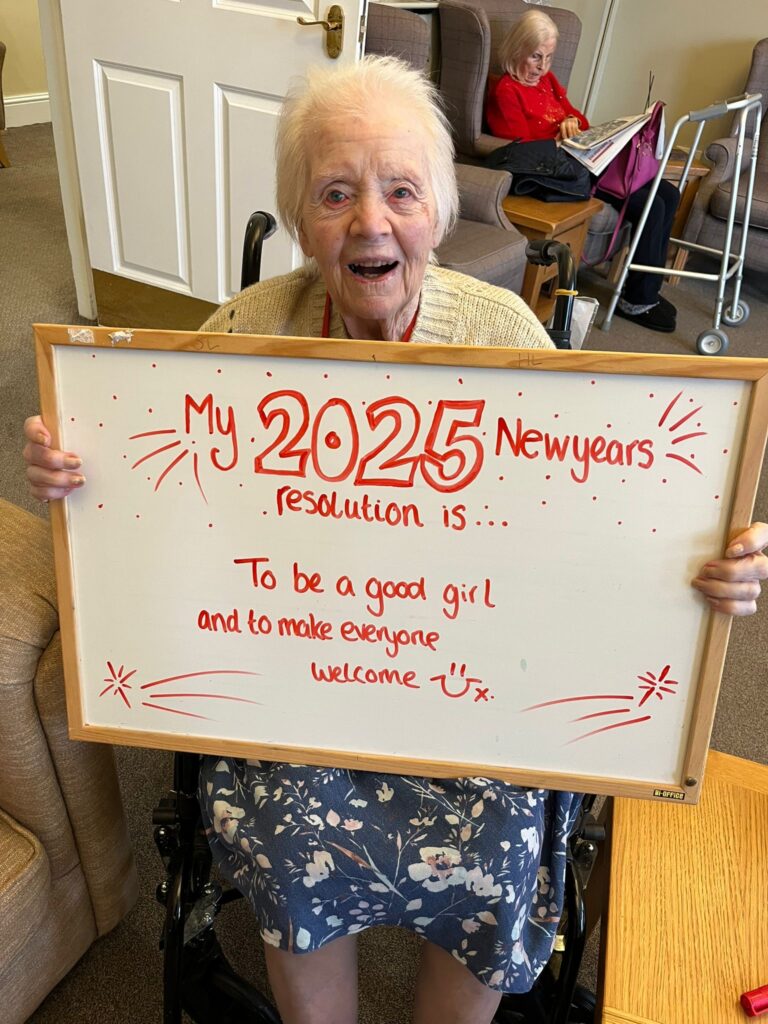 My 2025 Newyears
resolution is...
To be a good girl
and to make everyone
welcome x.
BI-OFFICE